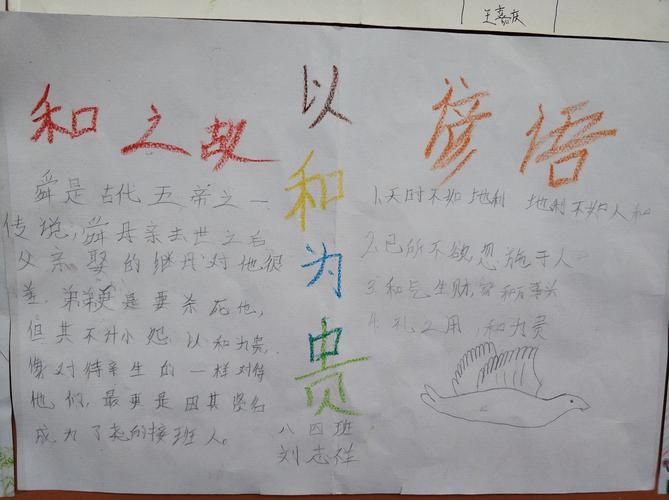 王嘉庆
和之故
舜是古代五帝之一
传说,舜母亲去世之后
父亲娶的继母对他很
差,弟更是要杀死他,
但其不计小怨,以和为贵,
像对待亲生的一样对待
他们,最更是因其贤名
成为了尧的接班人。
以和为贵
八四班
刘志祥
谚语
1.天时不如地利 地利不如人和
2.己所不欲忽施于人
3.和气生财,家和万事兴
4.礼之用,和为贵